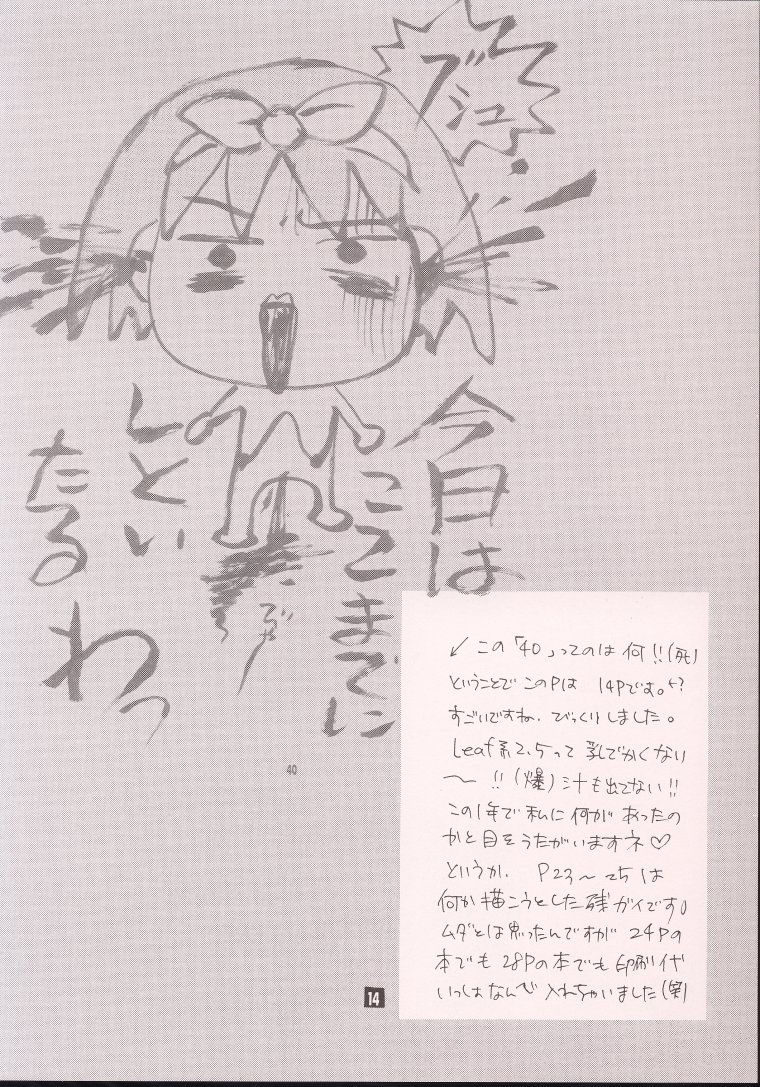 ブシュ
今日は
ここまでに
しとい
たるわっ
でゃ
40
↙この「40」ってのは何!!(死)
ということでこのPは 14Pです。
すごいですね.びっくりしました。
Leaf系2.5って乳でかくない
〜!!(爆)汁も出てない!!
この1年で私に何があったの
かと目をうたがいますネ♡
というか. P23〜25は
何か描こうとした残ガイです。
ムダとは思ったんですが 24Pの
本でも28Pの本でも印刷代
いっしょなんで入れちゃいました(笑)
14